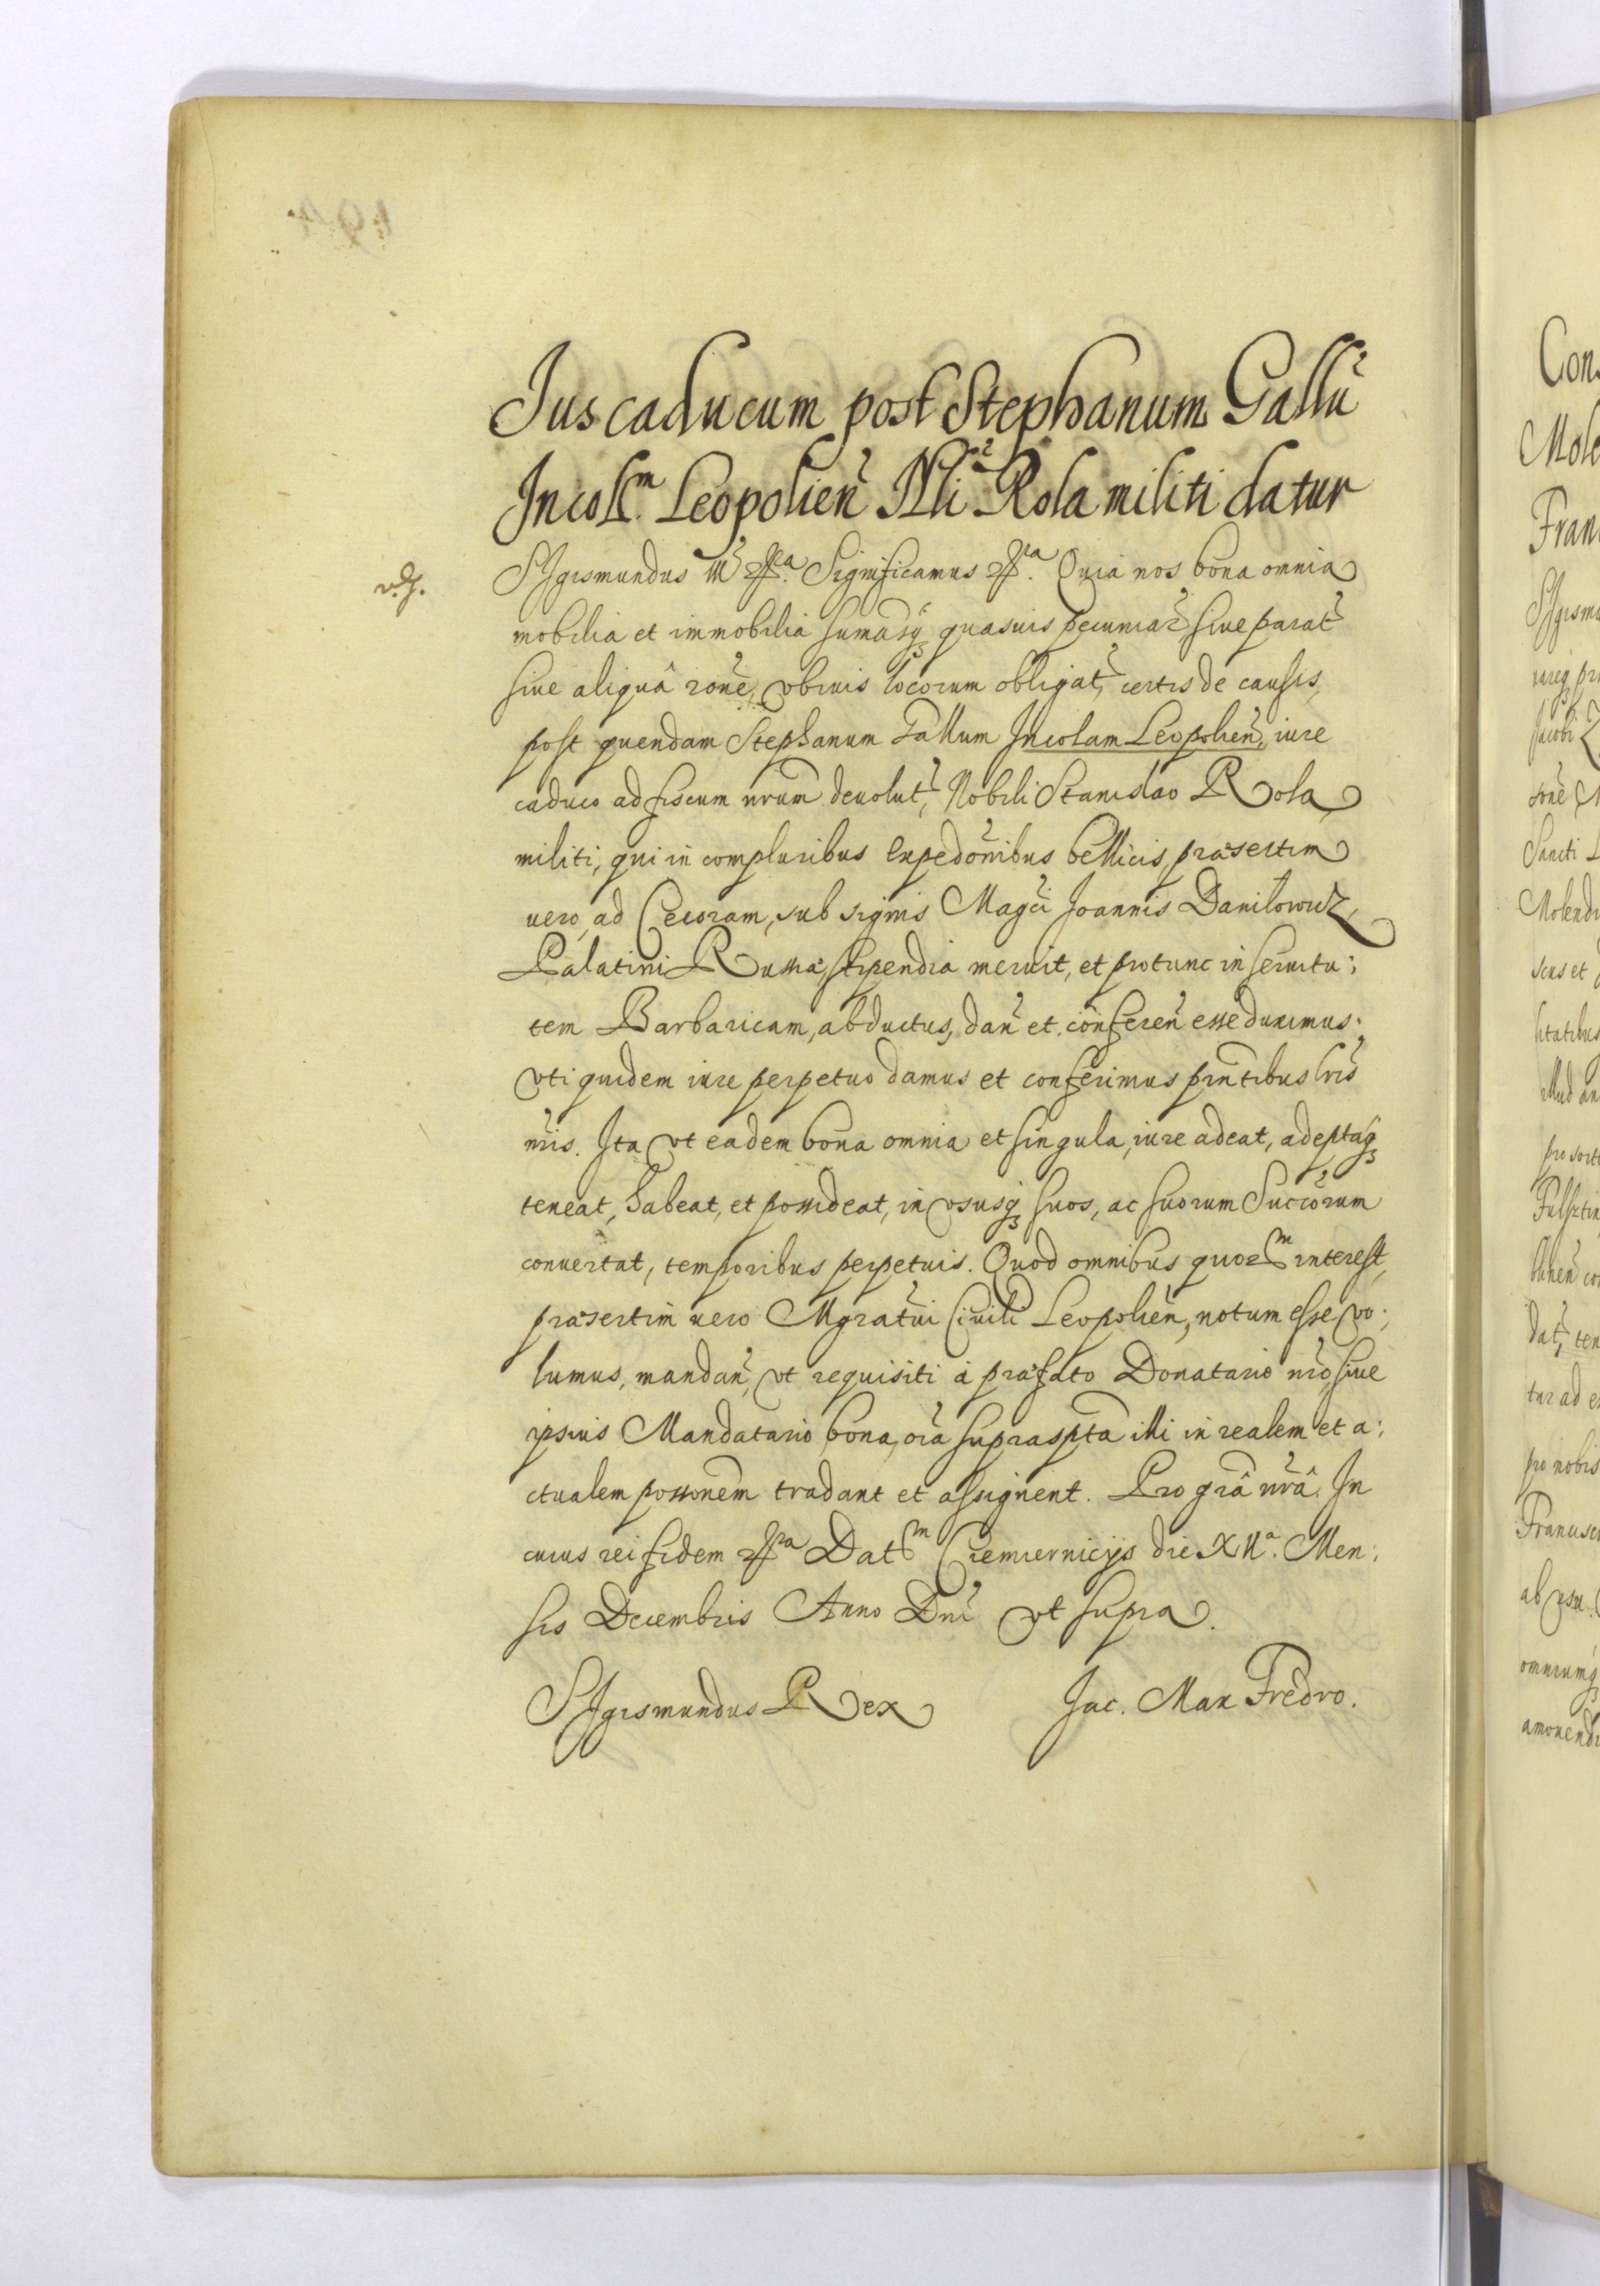 Jus caducum post Stephanum Gallũ
Incolam Leopolien Nli Rola militi datur
Sigismundus III etca. Significamus etca. Quia nos bona omnia
mobilia et immobilia sumasq quasuis pecuniar siue parat
siue aliquâ rone, vbiuis locorum obligat, certis de causis,
post quendam Stephanum Gallum Incolam Leopolien, iure
caduco ad fiscum nrum deuolut, Nobili Stanislao Rola
militi, qui in compluribus expedonibus bellicis, præsertim
uero, ad Cecoram, sub signis Magci Joannis Danilowicz,
Palatini Russiæ, stipendia meruit, et protunc in seruitu:
tem Barbaricam, abductus, dan et conferen esse duximus:
vti quidem iure perpetuo damus et conferimus pntibus lris
nris. Ita vt eadem bona omnia et singula, iure adeat, adeptaq
teneat, habeat, et possideat, in vsusq suos, ac suorum Succorum
conuertat, temporibus perpetuis. Quod omnibus quorm interest,
præsertim uero Mgratui Ciuili Leopolien, notum esse vo:
lumus, mandan, vt requisiti à præfato Donatario nro, siue
ipsius Mandatario bona, oia supraspta illi in realem et a:
ctualem possonem tradant et assignent. Pro grâ nrâ. In
cuius rei fidem etca Datm Ciemiernicijs die XIIa. Men:
sis Decembris Anno Dni vt supra.
Sigismundus Rex Jac. Max Fredro.
Con
Mole
Fran
Sigismu
Jacobi
Sancti
Molendi
scus et
litatibus
pro nobis
Francisc
ab vsu
omniumq
amouendi